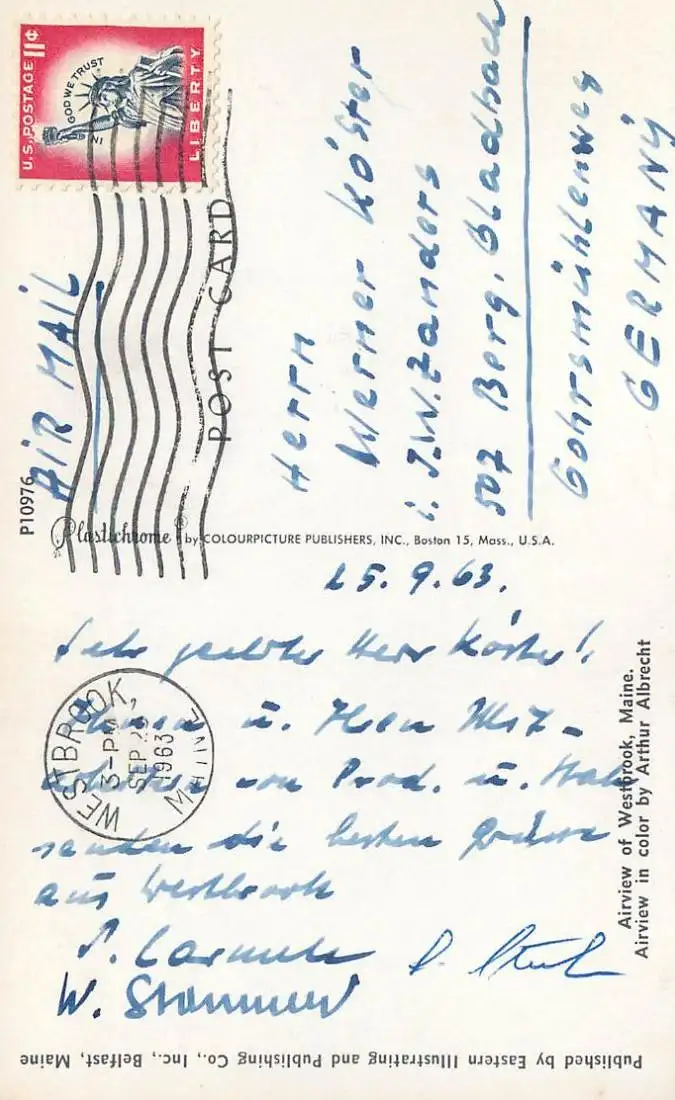 U.S. POSTAGE 11¢
IN GOD WE TRUST
LIBERTY
AIR MAIL
POST CARD
Herrn
Werner Köster
i. J.W. Zanders
507 Berg. Gladbach
Gohrsmühlenweg
GERMANY
P10976
Plastichrome® by COLOURPICTURE PUBLISHERS, INC., Boston 15, Mass., U.S.A.
25.9.63.
Sehr geehrter Herr Köster!
Ihnen u. Ihren Mit-
arbeitern von Prod. u.
senden die besten Grüsse
aus Westbrook
W.
WESTBROOK,
3-PM
SEP 25
1963
MAINE
Airview of Westbrook, Maine.
Airview in color by Arthur Albrecht
Published by Eastern Illustrating and Publishing Co., Inc., Belfast, Maine